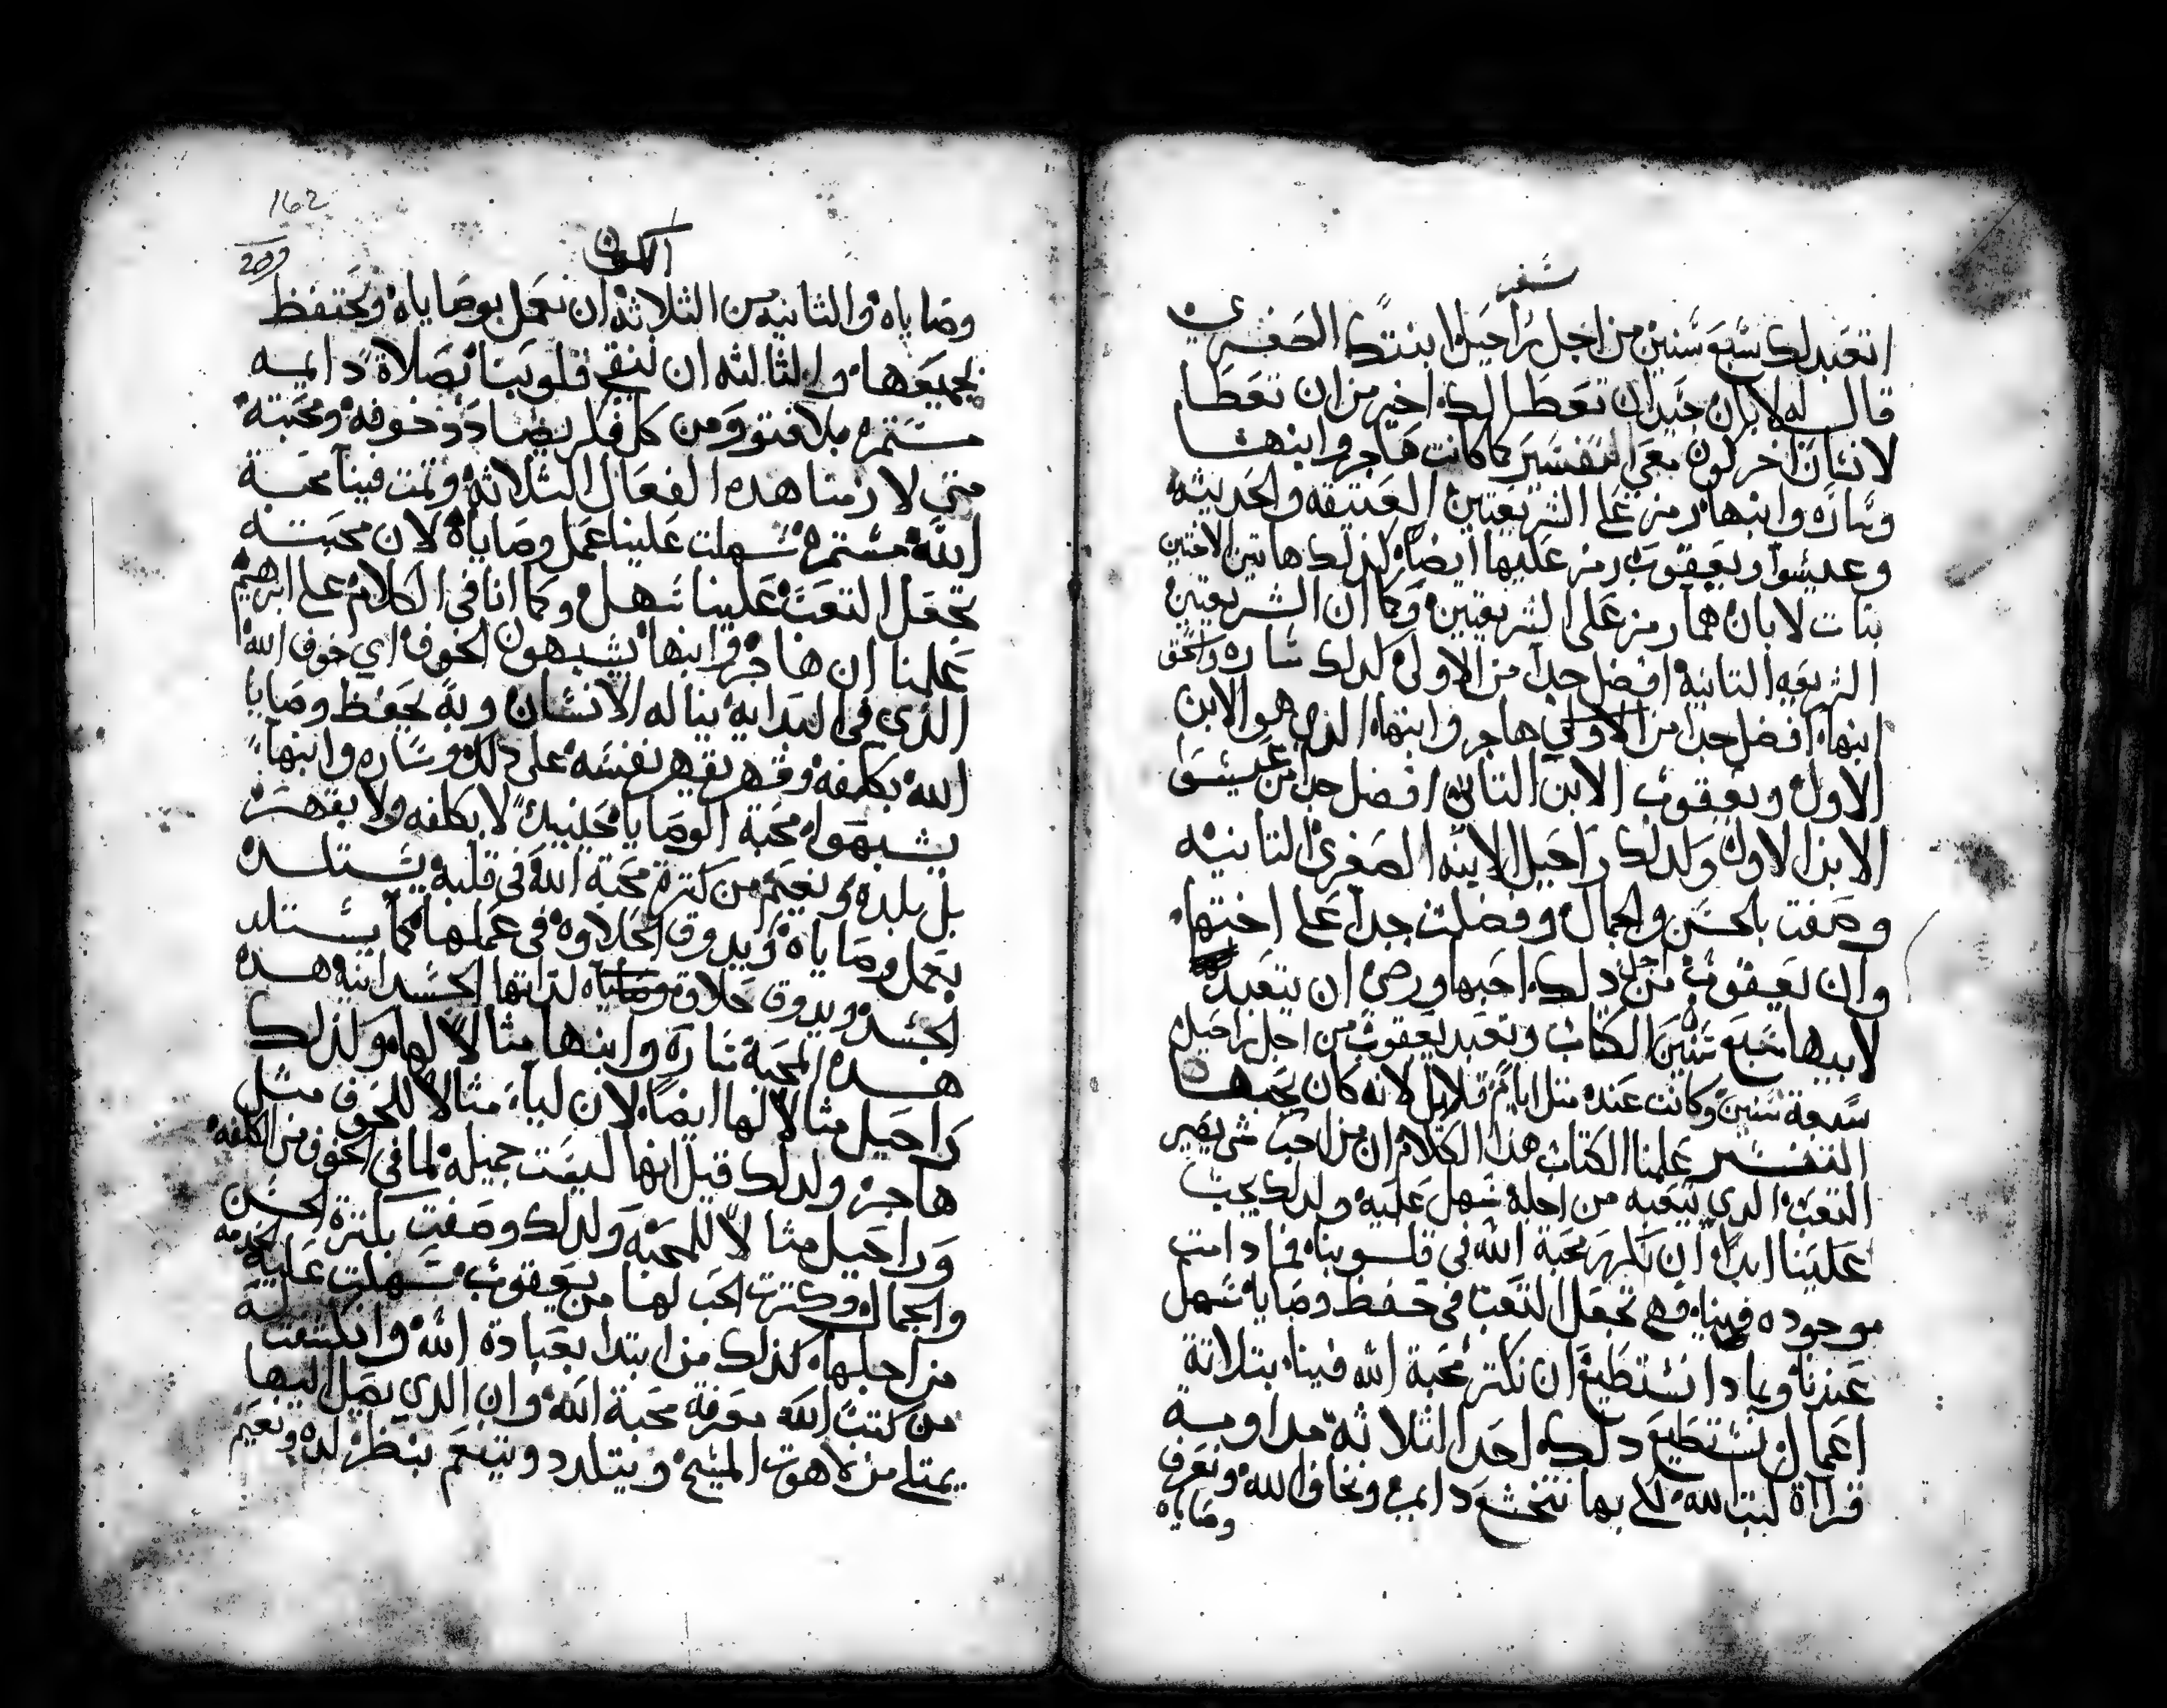 سفر
اتعبد لك سبع سنين من اجل راحيل ابنتك الصغرى
قال له لابان جيد ان تعطا لك اخير من ان تعطا
لانسان اخر لون بقى التفسير كما كانت هاجر وابنها
وساره وابنها رمز على الشريعتين العتيقه والحديثه
وعيسوا ويعقوب رمز عليها ايضا كذلك هاتين الاختين
بنات لابان هما رمز على الشريعتين وكما ان الشريعتين
الشريعه التانية افضل جدا من الاولى كدلك ساره واسحق
ابنها افضل جدا من الاولى هاجر وابنها الدي هو الابن
الاول ويعقوب الابن التاني افضل جدا من عيسوا
الابن الاول ولدلك راحيل الابنه الصغرى التانيه
وصفت بالحسن والجمال وفضلت جدا على اختها
وان يعقوب من اجل دلك احبها ورضي ان يتعبد
لابيها سبع سنين الكتاب وتعبد يعقوب من اجل راحيل
سبعة سنين وكانت عنده متل ايام قلايل لانه كان يحبها
التفسير علمنا الكتاب هدا الكلام ان من احب شي يصير
التعب الدي يتعبه من اجله سهل عليه ولدلك يجب
علينا ابدا ان نكتر محبة الله في قلوبنا فما دامت
موجوده فينا فهي تجعل التعب في حفظ وصاياه سهل
عندنا وبمادا نستطيع ان نكتر محبة الله فينا بتلاتة
اعمال نستطيع دلك احدا التلاثه مداومة
قراة كتب الله لكي بها نتخشع دايما ونخاف الله ونعرف
وصاياه
162
التكوين
وصاياه والثانيه من الثلاثه ان نعمل بوصاياه ونحتفظ
بجميعها والثالثه ان ننقي قلوبنا بصلاة دايمه
مستمره بلا فتور ومن كل فكر يضادد خوفه ومحبته
متى لازمنا هده الفعال التلاثه وتمت فينا محبة
الله مستمره سهلت علينا عمل وصاياه لان محبته
تجعل التعب علينا سهل وكما انا في الكلام على ابرهيم
علمنا ان هاجر وابنها يشبهون الخوف اي خوف الله
الدي في البدايه يناله الانسان وبه يحفظ وصايا
الله بكلفه وقهر يقهر نفسه على دلك وساره وابنها
يشبهوا محبة الوصايا لا بكلفه ولا بقهر
بل بلده ونعيم من كترة محبة الله في قلبه يستلده
بعمل وصاياه ويدوق الحلاوه في عملها كما يستلد
الجسد ويدوق حلاوة لداتها الجسدانيه هده
هده المحبة ساره وابنها مثالا لها ولدلك
راحيل مثالا لها ايضا لان ليا مثالا للخوف مثل
هاجر ولدلك قيل انها ليست جميله لما في الخوف من الكلفه
وراحيل مثالا للمحبه ولدلك وصفت بكترة الحسن
والجمال وكترت الحب لها من يعقوب سهلت عليه الخدمه
من اجلها كذلك من ابتدا بعبادة الله وانكشفت له
من كتب الله معرفة محبة الله وان الدي يصل اليها
يمتلي من لاهوت المسيح ويتلدد ويتنعم بنظر لده ونعيم